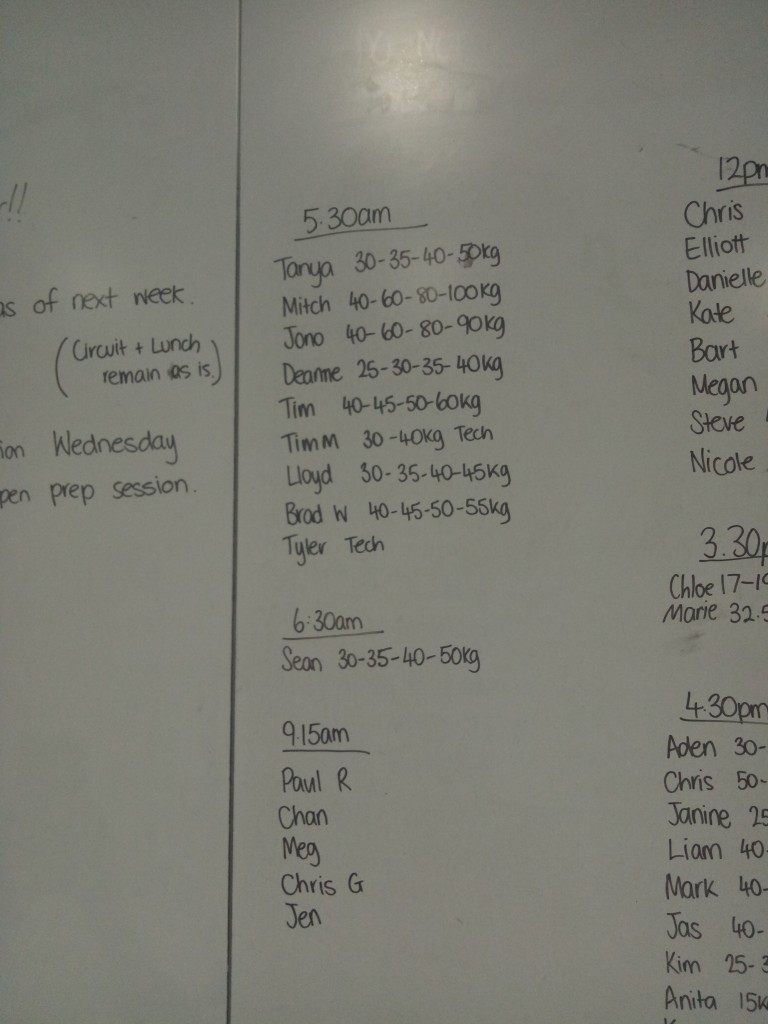 as of next week.
(Circuit + Lunch
remain as is.)
Wednesday
prep session.
5.30am
Tanya 30-35-40-50kg
Mitch 40-60-80-100kg
Jono 40-60-80-90kg
Deanne 25-30-35-40kg
Tim 40-45-50-60kg
Tim M 30-40kg Tech
Lloyd 30-35-40-45kg
Brad W 40-45-50-55kg
Tyler Tech
6:30am
Sean 30-35-40-50kg
9.15am
Paul R
Chan
Meg
Chris G
Jen
12pm
Chris
Elliott
Danielle
Kate
Bart
Megan
Steve
Nicole
3.30p
Chloe 17-19
Marie 32.5
4.30pm
Aden 30-
Chris 50-
Janine 25
Liam 40-
Mark 40-
Jas 40-
Kim 25-3
Anita 15k